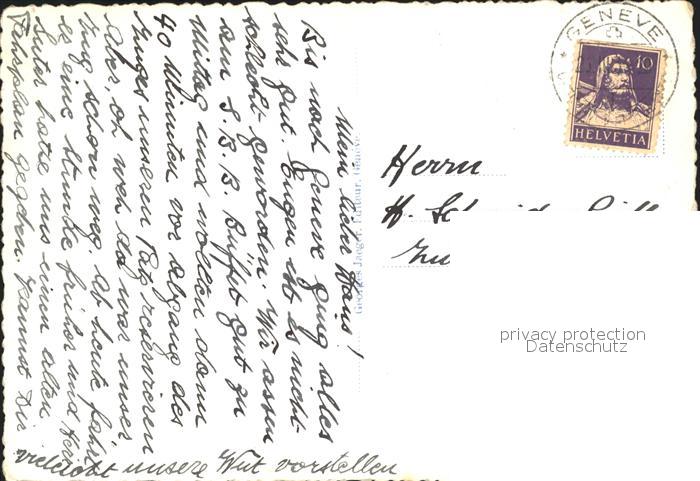 Mein lieber Hans!
Bis nach Genève ging alles
sehr gut. Eugen ist es nicht
schlecht geworden. Wir assen
am S.B.B. Büffet gut zu
Mittag und wollen dann
40 Minuten vor Abgang des
Zuges unseren Platz reservieren
aber, oh weh da war unser
Zug schon weg. Ab heute fährt
er eine Stunde früher und Herr
Suter hatte uns einen alten
Fahrplan gegeben. Kannst Dir
vieleicht unsere Wut vorstellen
Georges Jaeger, Editeur, Genève
GENEVE
10
HELVETIA
Herrn
H.
privacy protection
Datenschutz